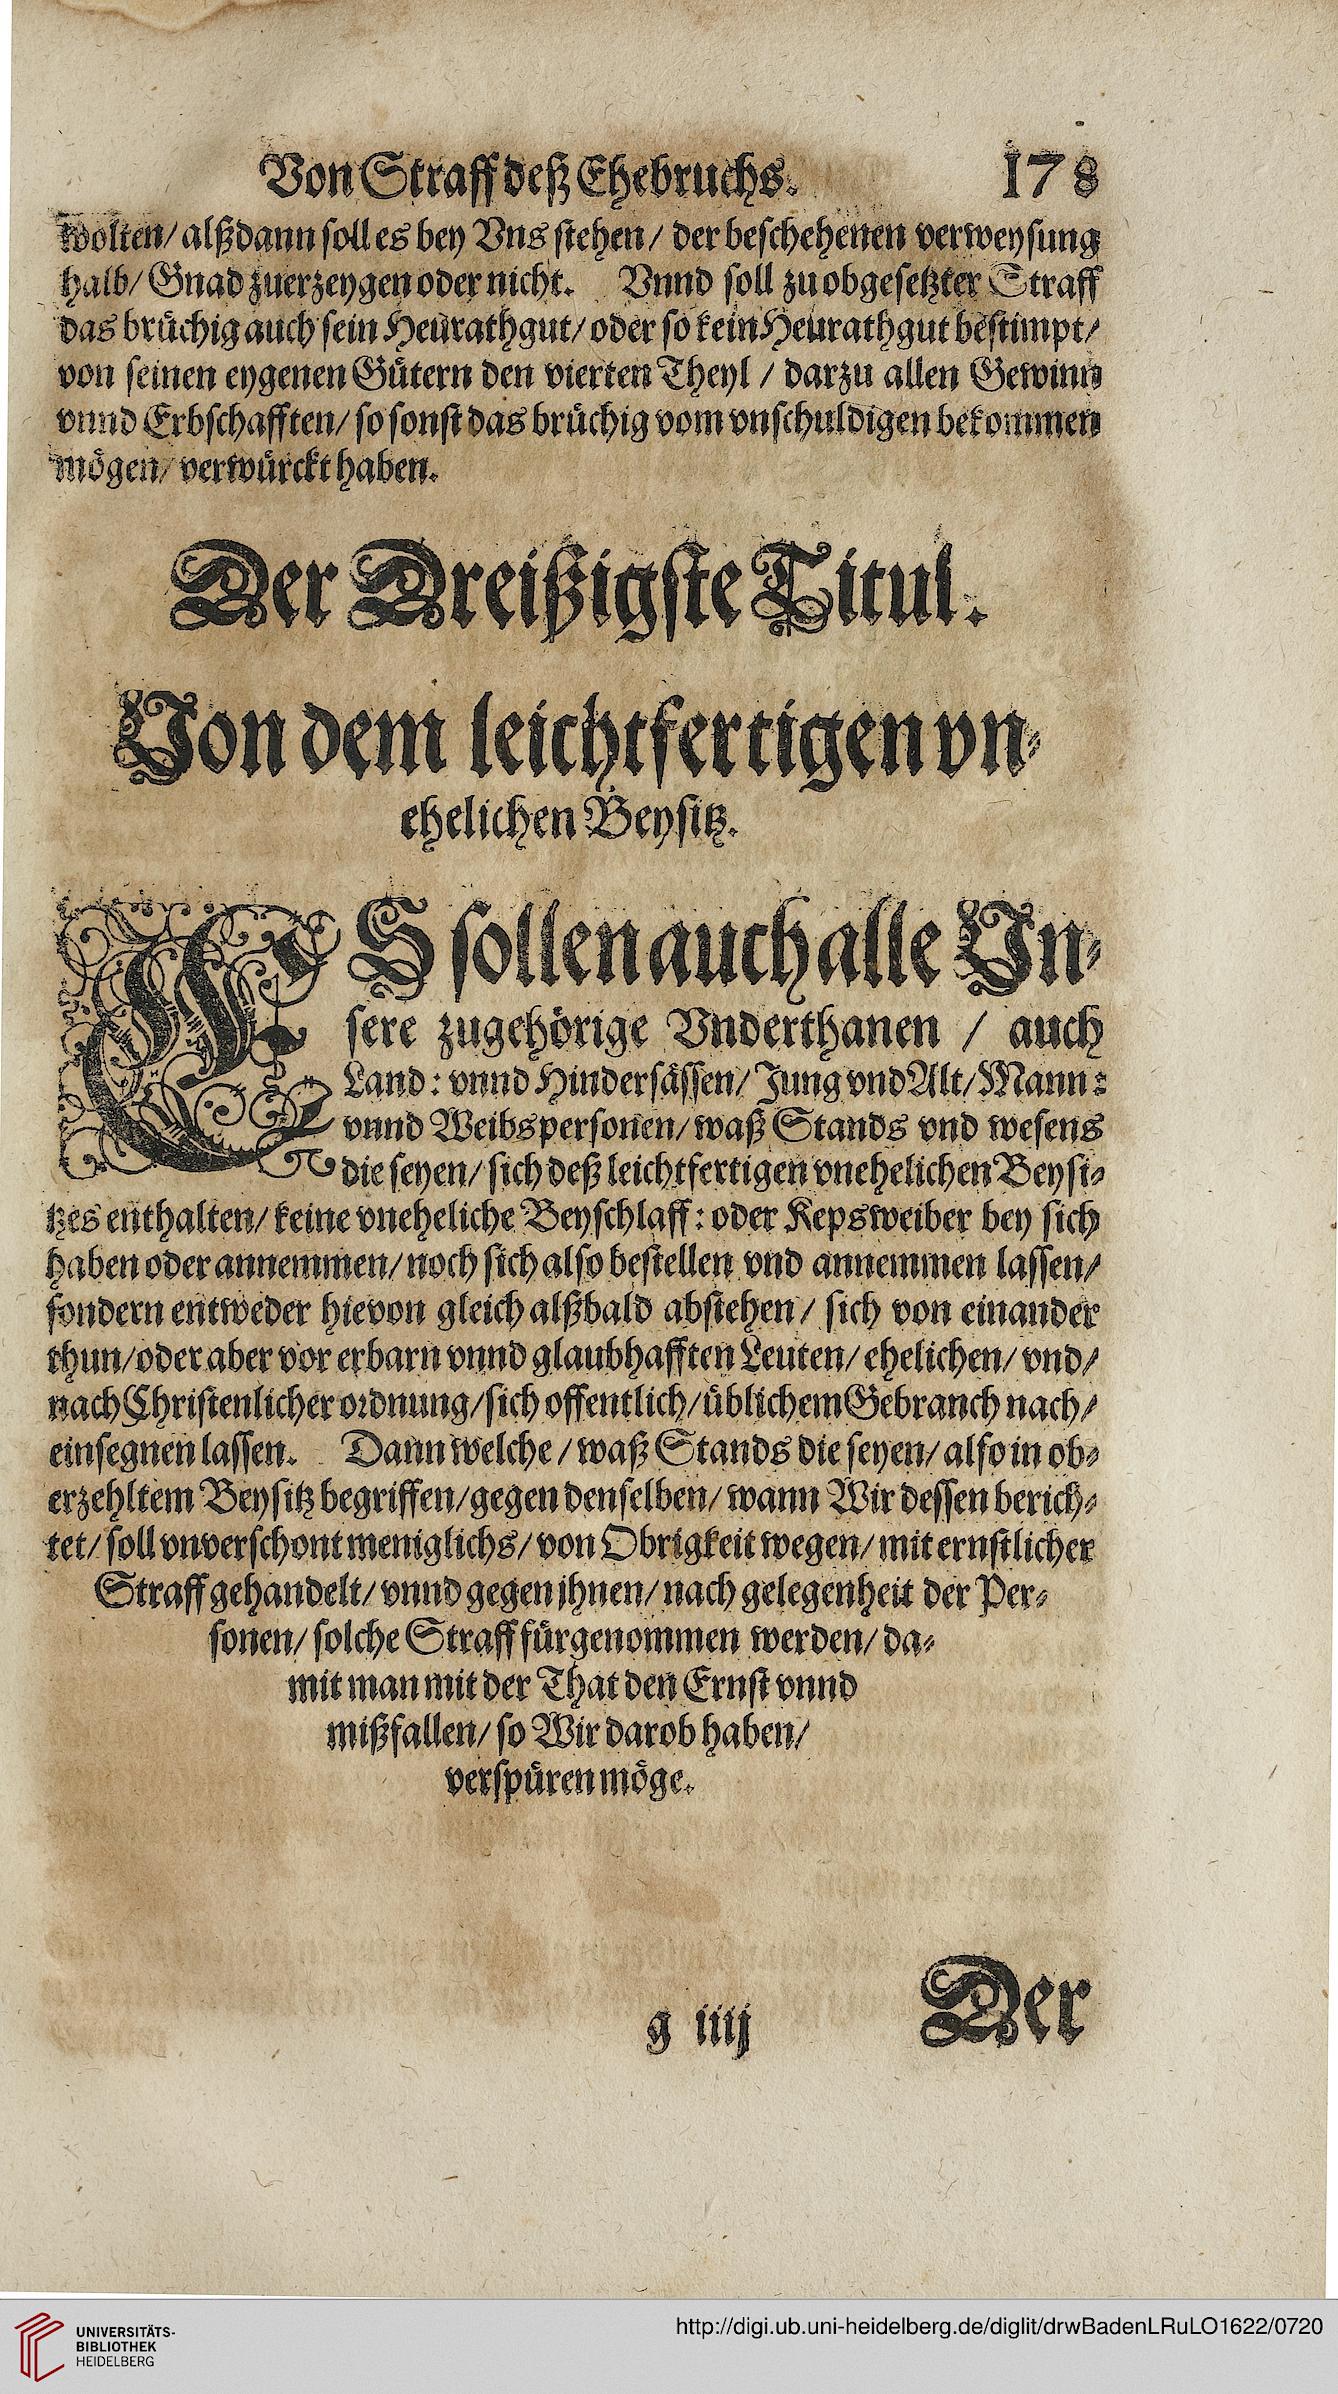 Von Straff deß Ehebruchs. 178
wolten/ alßdann soll es bey Vns stehen/ der beschehenen verweysung
halb/ Gnad zuerzeygen oder nicht. Vnnd soll zu obgesetzter Straff
das brüchig auch sein Heürathgut/ oder so kein Heurathgut bestimpt/
von seinen eygenen Gütern den vierten Theyl / darzu allen Gewinn
vnnd Erbschafften/ so sonst das brüchig vom vnschuldigen bekommen
mögen/ verwürckt haben.
Der Dreißigste Titul.
Von dem leichtfertigen vn-
ehelichen Beysitz.
ES sollen auch alle Vn-
sere zugehörige Vnderthanen / auch
Land: vnnd Hindersässen/ Jung vnd Alt/ Mann:
vnnd Weibspersonen/ waß Stands vnd wesens
die seyen/ sich deß leichtfertigen vnehelichen Beysi-
tzes enthalten/ keine vneheliche Beyschlaff: oder Kepsweiber bey sich
haben oder annemmen/ noch sich also bestellen vnd annemmen lassen/
sondern entweder hievon gleich alßbald abstehen/ sich von einander
thun/ oder aber vor erbarn vnnd glaubhafften Leuten/ ehelichen/ vnd/
nach Christenlicher ordnung/ sich offentlich/ üblichem Gebranch nach/
einsegnen lassen. Dann welche / waß Stands die seyen/ also in ob-
erzehltem Beysitz begriffen/ gegen denselben/ wann Wir dessen berich-
tet/ soll vnverschont meniglichs/ von Obrigkeit wegen/ mit ernstlicher
Straff gehandelt/ vnnd gegen jhnen/ nach gelegenheit der Per-
sonen/ solche Straff fürgenommen werden/ da-
mit man mit der That den Ernst vnnd
mißfallen/ so Wir darob haben/
verspüren möge.
g iiij Der
UNIVERSITÄTS-
BIBLIOTHEK
HEIDELBERG
http://digi.ub.uni-heidelberg.de/diglit/drwBadenLRuLO1622/0720